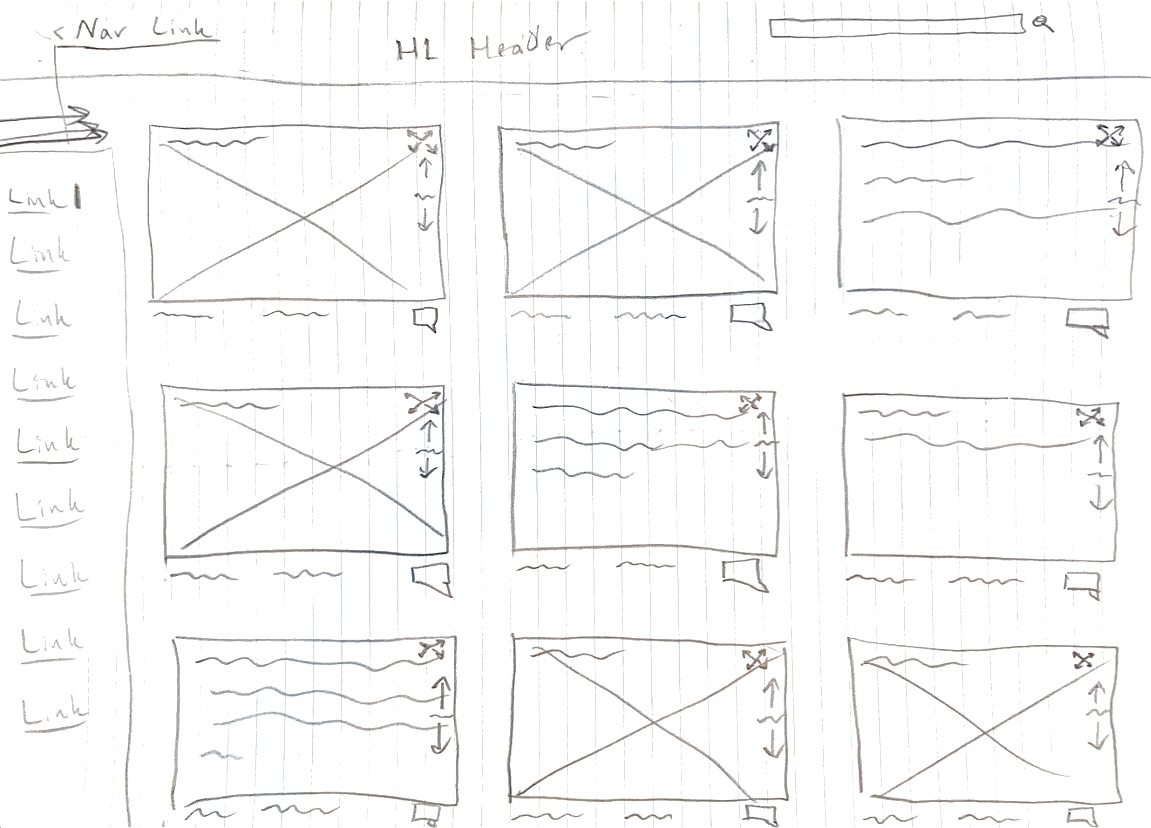 < Nav Link
H1 Header
Link
Link
Link
Link
Link
Link
Link
Link
Link